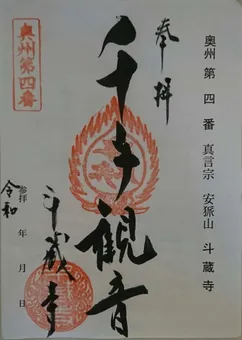 奥州 第四番 真言宗 安狐山 斗蔵寺
奉拝
千手観音
斗蔵寺
奥州第四番
令和
参拝 年 月 日